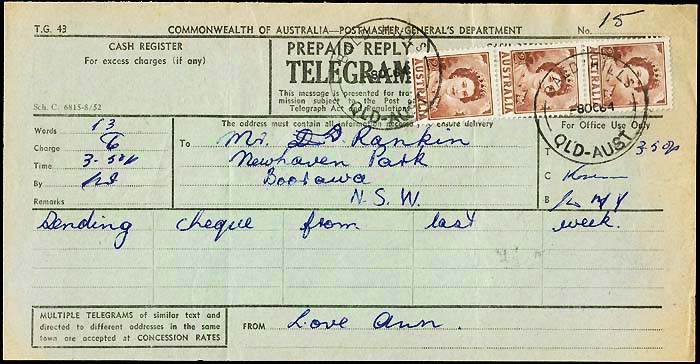 T.G. 43 COMMONWEALTH OF AUSTRALIA—POSTMASTER-GENERAL'S DEPARTMENT No. 15
CASH REGISTER
For excess charges (if any)
Sch. C. 6815-8/52
PREPAID REPLY
TELEGRAM
This message is presented for tra
mission subject to the Post
Telegraph Act and Regulation
AUSTRALIA
AUSTRALIA
AUSTRALIA
QLD-AUST
8 OC 64
QLD-AUST
The address must contain all information necessary to ensure delivery
For Office Use Only
Words 13
Charge 6
Time 3-50p
By
Remarks
To Mr. D Rankin
Newhaven Park
Boorawa
N. S. W.
3-50p
C
B
Sending cheque from last week.
MULTIPLE TELEGRAMS of similar text and
directed to different addresses in the same
town are accepted at CONCESSION RATES
FROM Love Ann.